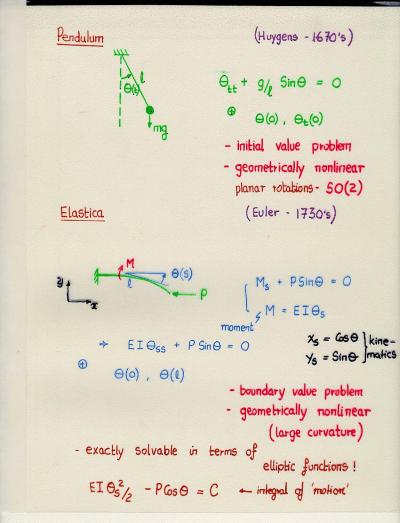 Pendulum
(Huygens - 1670's)
l
θ(t)
mg
θ_tt + g/l Sinθ = 0
⊕ θ(0), θ_t(0)
- initial value problem
- geometrically nonlinear
planar rotations - SO(2)
Elastica
(Euler - 1730's)
M
θ(s)
l
P
y
x
M_s + P Sinθ = 0
M = EIθ_s
moment
x_s = Cosθ
y_s = Sinθ
} kine-
matics
⇒ EIθ_ss + P Sinθ = 0
⊕ θ(0), θ(l)
- boundary value problem
- geometrically nonlinear
(large curvature)
- exactly solvable in terms of
elliptic functions!
EIθ_s²/2 - P Cosθ = C ← integral of 'motion'